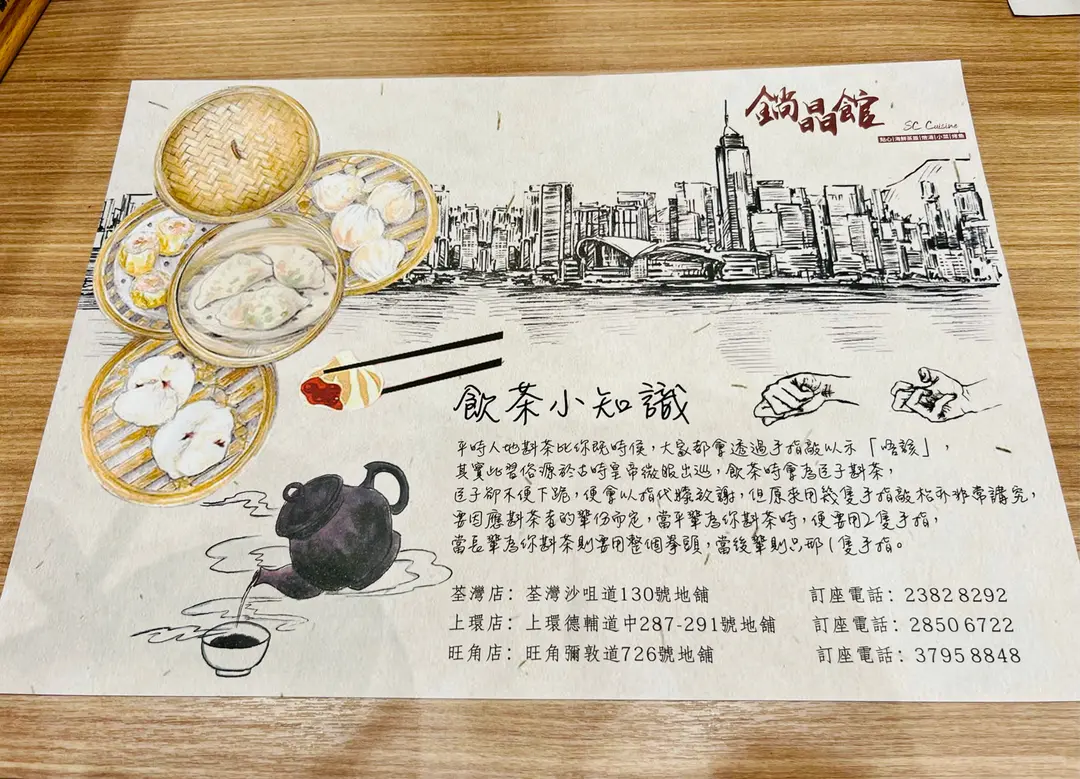 鋿晶館
SC Cuisine
點心|海鮮菜圃|燉湯|小菜|燒臘
飲茶小知識
平時人地斟茶比你既時侯，大家都會透過手指敲以示「唔該」，
其實此習俗源於古時皇帝微服出巡，飲茶時會為臣子斟茶，
臣子卻不便下跪，便會以指代膝敬謝，但原來用幾隻手指敲枱亦非常講究，
要因應斟茶者的輩份而定，當平輩為你斟茶時，便要用2隻手指，
當長輩為你斟茶則要用整個拳頭，當後輩則只郁1隻手指。
荃灣店：荃灣沙咀道130號地舖 訂座電話：2382 8292
上環店：上環德輔道中287-291號地舖 訂座電話：2850 6722
旺角店：旺角彌敦道726號地舖 訂座電話：3795 8848